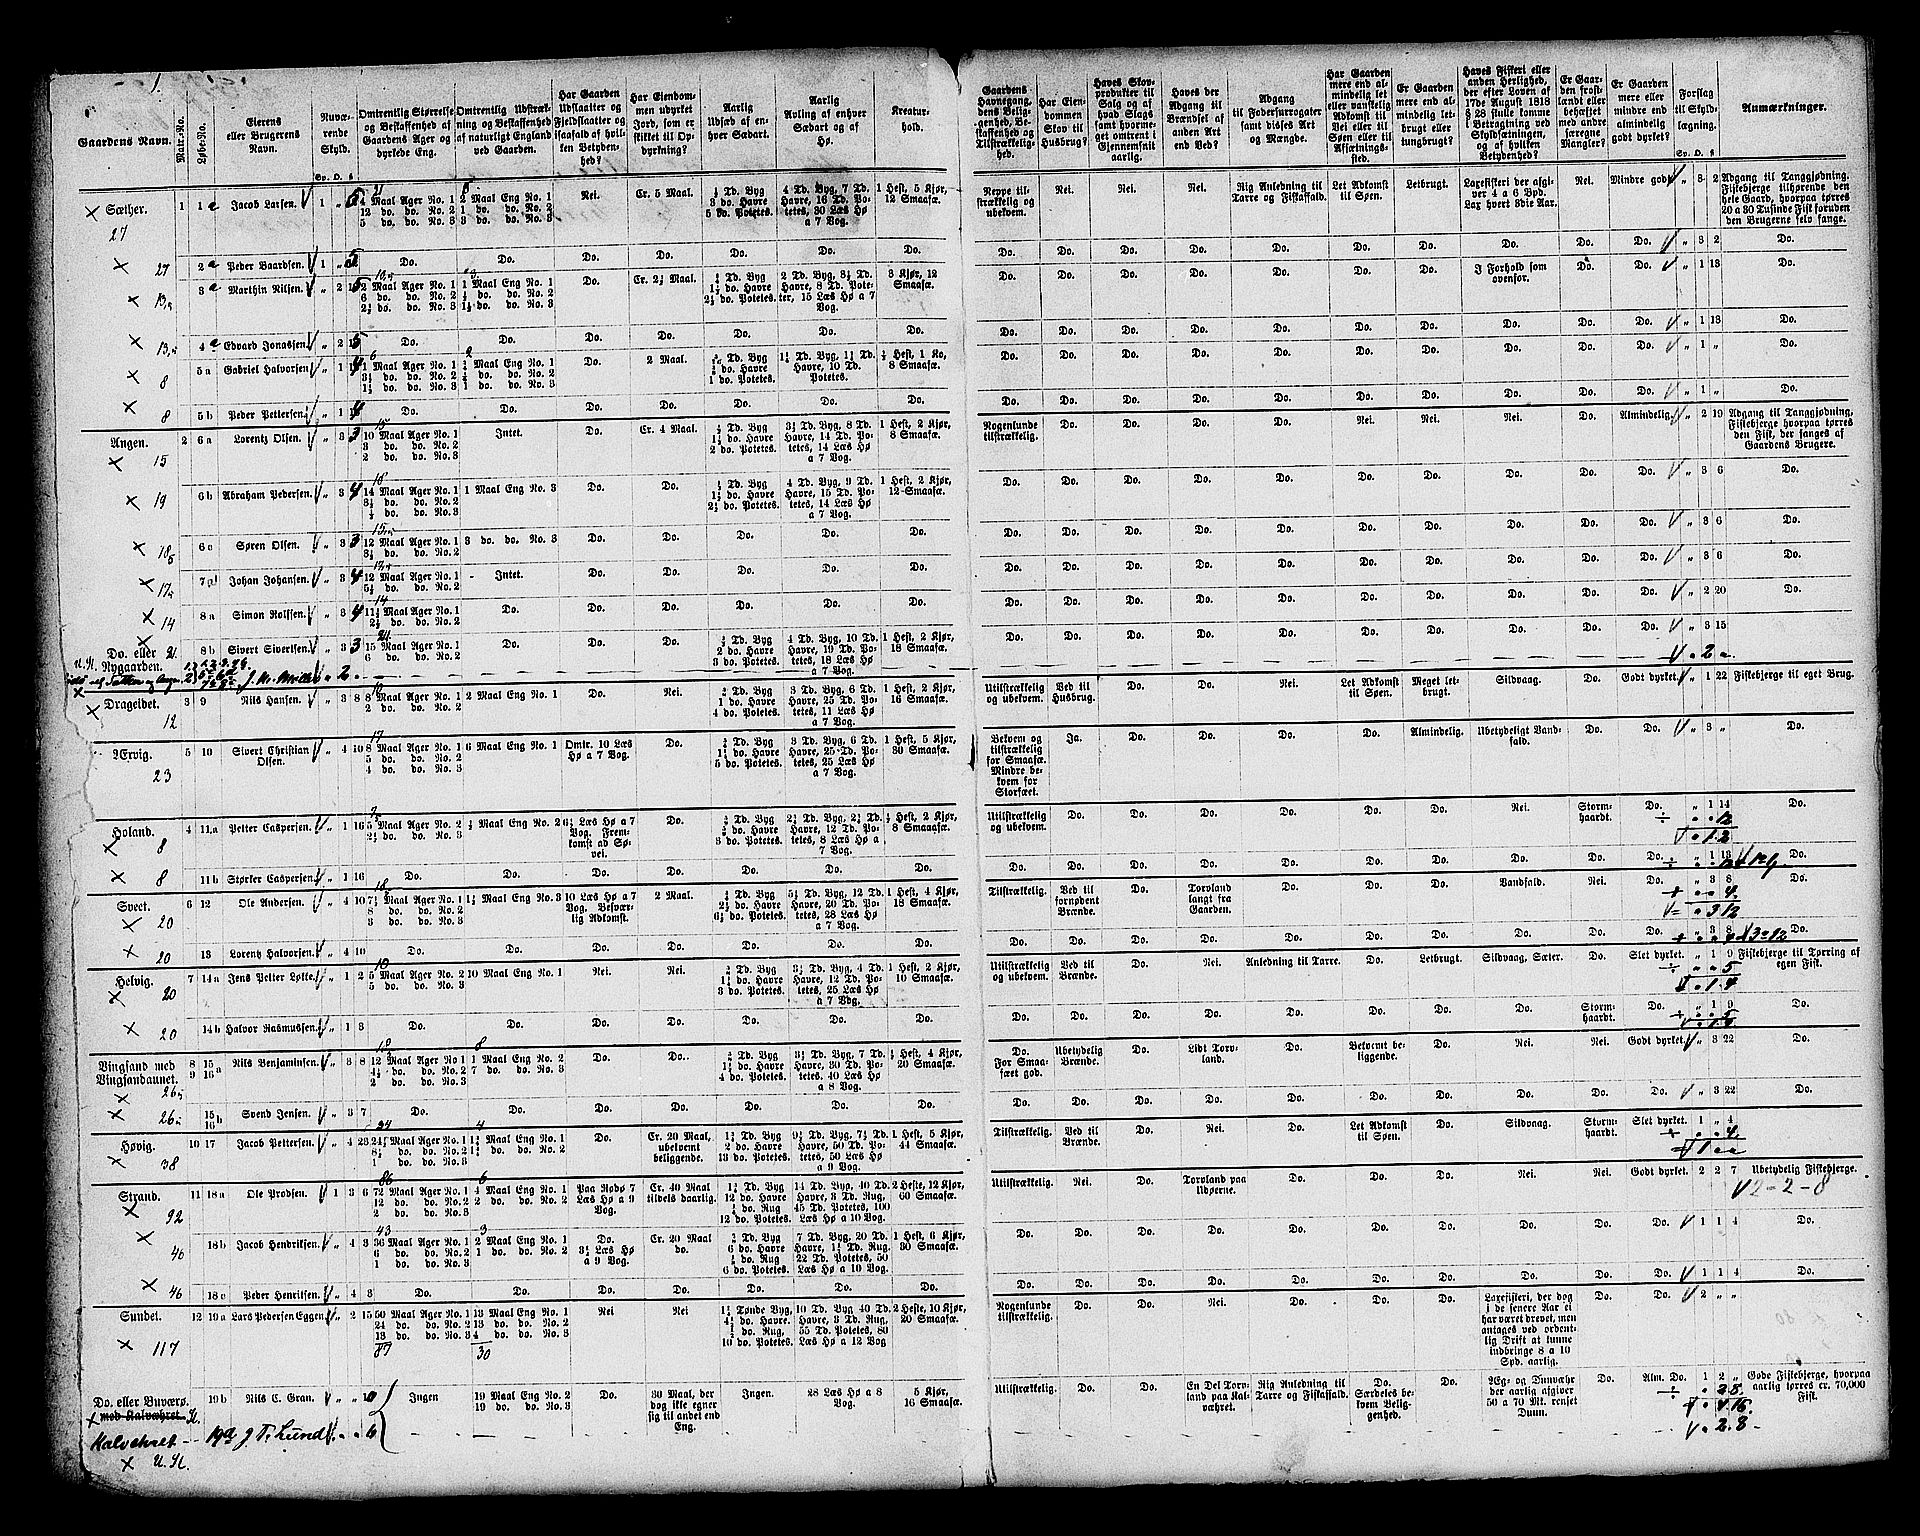 1.
Gaardens Navn.
Matr.-No.
Løbe-No.
Eierens eller Brugerens Navn.
Nuværende Skyld.
Sp. D. ß
Omtrentlig Størrelse og Bestaffenhed af Gaardens Ager og dyrkede Eng.
Omtrentlig Udstrækning og Bestaffenhed af naturligt England ved Gaarden.
Har Gaarden Udslaatter og Fjeldslaatter og isaafald af hvilken Betydenhed?
Har Eiendommen udyrket Jord, som er skikket til Opdyrkning?
Aarlig Udsæd af enhver Sædart.
Aarlig Avling af enhver Sædart og af Hø.
Kreaturhold.
Gaardens Havnegang, dens Beliggenhed, Bestaffenhed og Tilstrækkelighed.
Har Eiendommen Skov til Husbrug?
Haves Skovprodukter til Salg og af hvad Slags samt hvormeget omtrent i Gjennemsnit aarlig.
Haves der Adgang til Brændsel af anden Art end Ved?
Adgang til Fodersurrogater samt disses Art og Mængde.
Har Gaarden mere end almindelig let eller vanskelig Adkomst til Vei eller til Søen eller til Afsætningssted.
Er Gaarden mere end almindelig letbrugt eller tungbrugt?
Haves Fiskeri eller anden Herlighed, der efter Loven af 17de August 1818 § 28 skulle komme i Betragtning ved Skyldsætningen, og af hvilken Betydenhed?
Er Gaarden frostlændt eller behæftet med andre særegne Mangler?
Er Gaarden mere eller mindre end almindelig godt dyrket?
Forslag til Skyldlægning.
Sp. D. ß
Anmærkninger.
Sæther. 1 1a Jacob Larsen. 1 „ 5 4 Maal Ager No. 1 2 Maal Eng No. 1 Nei. Cr. 5 Maal. ½ Td. Byg 4 Td. Byg, 7 Td. 1 Hest, 5 Kjør, Neppe til- Nei. Nei. Nei. Rig Anledning til Let Adkomst Letbrugt. Laxefiskeri der afgi- Nei. Mindre godt „ 3 2 Adgang til Tanggjødning.
12 do. do. No. 2 1 do. do. No. 2 3 do. Havre Havre, 16 Td. Po- 12 Smaafæ. strækkelig og Tarre og Fiskaffald. til Søen. ver 4 a 6 Bpd. Fiskebjerge tilhørende den
5 do. do. No. 3 3 do. do. No. 3 5 do. Potetes. tetes, 30 Læs Hø ubekvem. Lax hvert 3die Aar. hele Gaard, hvorpaa tørres
27 a 7 Vog. 20 a 30 Tusinde Fisk foruden
den Brugerne selv fange.
27 2a Peder Baardsen. 1 „ 5 Do. Do. Do. Do. Do. Do. Do. Do. Do. Do. Do. Do. Do. Do. Do. Do. Do. „ 3 2 Do.
3a Marthin Nilsen. „ 2 2 Maal Ager No. 1 1 Maal Eng No. 1 Do. Cr. 2½ Maal. ¼ Td. Byg 2 Td. Byg, 3½ Td. 3 Kjør, 12 Do. Do. Do. Do. Do. Do. Do. I Forhold som Do. Do. „ 1 13 Do.
6 do. do. No. 2 Havre, 8 Td. Pote- Smaafæ. ovenfor.
2½ do. do. No. 3 2½ do. Potetes. ter, 15 Læs Hø a 7
Vog.
4a Edvard Jonassen. „ 2 5 Do. Do. Do. Do. Do. Do. Do. Do. Do. Do. Do. Do. Do. Do. Do. Do. Do. „ 1 13 Do.
8 5a Gabriel Halvorsen. „ 1 4 1 Maal Ager No. 1 Maal Eng No. 1 Do. 2 Maal. Td. Byg Td. Byg, 1½ Td. ½ Hest, 1 Ko, Do. Do. Do. Do. Do. Do. Do. Do. Do. Do. „ 1 „ Do.
3½ do. do. No. 2 do. do. No. 2 do. Havre Havre, 10 Td. 8 Smaafæ.
1½ do. do. No. 3 do. do. No. 3 1 do. Potetes Potetes.
8 5b Peder Pettersen. „ 1 4 Do. Do. Do. Do. Do. Do. Do. Do. Do. Do. Do. Do. Do. Do. Do. Do. Do. „ 1 „ Do.
Angen. 2 6a Lorentz Olsen. „ 3 3 10 Maal Ager No. 1 Intet. Do. Cr. 4 Maal. ½ Td. Byg 3½ Td. Byg, 8 Td. 1 Hest, 2 Kjør, Nogenlunde Do. Do. Do. Do. Nei. Nei. Nei. Do. Almindelig. „ 2 19 Adgang til Tanggjødning,
3 do. do. No. 2 1½ do. Havre Havre, 14 Td. Po- 8 Smaafæ. tilstrækkelig. Fiskebjerge hvorpaa tørres
15 2 do. do. No. 3 2 do. Potetes. tetes, 14 Læs Hø den Fisk, der fanges af
a 7 Vog. Gaardens Brugere.
19 6b Abraham Pedersen. „ 3 4 14 Maal Ager No. 1 1 Maal Eng No. 3 Do. Do. ½ Td. Byg 4 Td. Byg, 9 Td. 1 Hest, 2 Kjør, Do. Do. Do. Do. Do. Do. Do. Do. Do. Do. „ 3 6 Do.
3½ do. do. No. 2 1½ do. Havre Havre, 15 Td. Po- 12 Smaafæ.
½ do. do. No. 3 2½ do. Potetes. tetes, 14 Læs Hø
a 7 Vog.
6c Søren Olsen. „ 3 3 12 Maal Ager No. 1 3 do. do. No. 3 Do. Do. Do. Do. Do. Do. Do. Do. Do. Do. Do. Do. Do. Do. Do. „ 3 6 Do.
3½ do. do. No. 2
7a Johan Johansen. „ 3 4 12 Maal Ager No. 1 Intet. Do. Do. Do. Do. Do. Do. Do. Do. Do. Do. Do. Do. Do. Do. Do. „ 3 6 Do.
5½ do. do. No. 2
14 8a Simon Rolfsen. „ 3 4 11½ Maal Ager No. 1 Do. Do. Do. Do. Do. Do. Do. Do. Do. Do. Do. Do. Do. Do. Do. Do. „ 2 20 Do.
2½ do. do. No. 2
Do. eller 21 8b Sivert Sivertsen. „ 3 3 15 Maal Ager No. 1 Do. Do. Do. Td. Byg 4 Td. Byg, 10 Td. 1 Hest, 2 Kjør, Do. Do. Do. Do. Do. Do. Do. Do. Do. Do. „ 3 15 Do.
Nygaarden. 6 do. do. No. 2 2 do. Havre Havre, 19 Td. Po- 18 Smaafæ.
3 do. Potetes. tetes, 18 Læs Hø
a 7 Vog.
Drageidet. 3 9 Nils Hansen. „ 3 8 8 Maal Ager No. 1 2 Maal Eng No. 1 Do. Nei. Td. Byg 3 Td. Byg, 6 Td. 1 Hest, 2 Kjør, Utilstrækkelig Ved til Do. Do. Nei. Let Adkomst Meget let- Sildvaag. Do. Godt dyrket. „ 1 22 Fiskebjerge til eget Brug.
12 2 do. do. No. 2 1 do. Havre Havre, 25 Td. Po- 16 Smaafæ. og ubekvem. Husbrug. til Søen. brugt.
4 do. Potetes. tetes, 11 Læs Hø
a 7 Vog.
Ærvig. 5 10 Sivert Christian Olsen. „ 4 10 8 Maal Ager No. 1 6 Maal Eng No. 1 Omtr. 10 Læs Do. Td. Byg 3 Td. Byg, 6 Td. 1 Hest, 5 Kjør, Bekvem og Ja. Do. Do. Do. Do. Almindelig. Ubetydeligt Vand- Do. Do. „ 3 „ Do.
23 5 do. do. No. 2 Hø a 7 Vog. 1½ do. Havre Havre, 25 Td. Po- 30 Smaafæ. tilstrækkelig fald.
4 do. do. No. 3 5 do. Potetes. tetes, 25 Læs Hø for Smaafæ.
a 7 Vog. Mindre bekvem for Storfæet.
Holand. 4 11a Petter Caspersen. „ 1 16 5 Maal Ager No. 2 ½ Maal Eng No. 2 6½ Læs Hø a 7 Do. ½ Td. Byg 2½ Td. Byg, 2½ Td. ½ Hest, 2 Kjør, Utilstrækkelig Do. Do. Do. Do. Do. Do. Nei. Storm- Do. „ 1 14 Do.
8 2½ do. do. No. 3 Vog. Fremkomst ad Søvei. do. Havre Havre, 12 Td. Po- 8 Smaafæ. og ubekvem. haardt. ÷ 12
3 do. Potetes. tetes, 8 Læs Hø a 7 Vog. 1. 2
8 11b Størker Caspersen. „ 1 16 Do. Do. Do. Do. Do. Do. Do. Do. Do. Do. Do. Do. Do. Do. Do. Do. Do. „ 1 13 Do.
Svect. 6 12 Ole Andersen. „ 4 10 7½ Maal Ager No. 1 1½ Maal Eng No. 1 10 Læs Hø a 7 2 Maal. Td. Byg 5½ Td. Byg, 12 Td. 1 Hest, 4 Kjør, Tilstrækkelig. Ved til Do. Torvland Do. Do. Do. Vandfald. Nei. Do. „ 3 8 Do.
20 8 do. do. No. 2 Vog. Besværlig Adkomst. 2½ do. Havre Havre, 20 Td. Po- 18 Smaafæ. fornødent langt fra + 4.
3 do. do. No. 3 6½ do. Potetes. tetes, 28 Læs Hø Brænde. Gaarden. 3 12
a 7 Vog.
20 13 Lorentz Halvorsen. „ 4 10 Do. Do. Do. Do. Do. Do. Do. Do. Do. Do. Do. Do. Do. Do. Do. Do. Do. „ 3 8 3 = 12 Do.
Helvig. 7 14a Jens Petter Løkke. „ 1 2 5 Maal Ager No. 2 10 Maal Eng No. 1 Nei. Nei. Td. Byg 3½ Td. Byg, 4 Td. 1 Hest, 2 Kjør, Utilstrækkelig Ved til Do. Nei. Anledning til Tarre. Do. Letbrugt. Sildvaag, Sæter. Do. Slet dyrket. „ 1 9 Fiskebjerge til Tørring af
20 5 do. do. No. 3 1½ do. Havre Havre, 12 Td. Po- 10 Smaafæ. og ubekvem. Brænde. ÷ 5 egen Fisk.
3 do. Potetes. tetes, 25 Læs Hø 1. 4
a 7 Vog.
20 14b Halvor Rasmussen. „ 1 3 Do. Do. Do. Do. Do. Do. Do. Do. Do. Do. Do. Do. Do. Do. Do. Storm- Do. „ 1 9 Do.
haardt.
Vingsand med 8 15 a Nils Benjaminsen. „ 3 8 12 Maal Ager No. 1 1 Maal Eng No. 2 Do. Do. Td. Byg 3½ Td. Byg, 7 Td. ½ Hest, 4 Kjør, Do. Ubetydelig Do. Lidt Torv- Do. Bekvemt be- Do. Nei. Nei. Godt dyrket. „ 3 22 Do.
Vingsandaunet. 9 16 4½ do. do. No. 2 7 do. do. No. 3 1½ do. Havre Havre, 30 Td. Po- 20 Smaafæ. For Smaa- Brænde. land. liggende.
2 do. do. No. 3 4 do. Potetes. tetes, 40 Læs Hø fæet god.
a 8 Vog.
15 16 b Svend Jensen. „ 3 7 Do. Do. Do. Do. Do. Do. Do. Do. Do. Do. Do. Do. Do. Do. Do. Do. Do. „ 3 22 Do.
Høvig. 10 17 Jacob Pettersen. „ 4 23 24½ Maal Ager No. 1 1½ Maal Eng No. 1 Do. Cr. 20 Maal, 1½ Td. Byg 9½ Td. Byg, 7½ Td. 1 Hest, 5 Kjør, Tilstrækkelig. Ved til Do. Nei. Do. Let Adkomst Do. Sildvaag. Storm- Slet dyrket. 1 „ 4 Do.
38 8½ do. do. No. 2 do. do. No. 2 ubekvemt 2 do. Havre Havre, 50 Td. Po- 44 Smaafæ. Brænde. til Søen. haardt. 4.
1 do. do. No. 3 beliggende. 13 do. Potetes. tetes, 50 Læs Hø
a 9 Vog.
Strand. 11 18a Ole Prodsen. 1 3 6 72 Maal Ager No. 1 4 Maal Eng No. 1 Paa Rødø 7 Cr. 40 Maal 1½ Td. Byg 14 Td. Byg, 40 Td. 2 Heste, 12 Kjør, Utilstrækkelig. Nei. Do. Torvland paa Do. Do. Do. Nei. Nei. Godt dyrket. 2 2 7 Ubetydelig Fiskebjerge.
92 12 do. do. No. 2 2 do. do. No. 2 Læs Hø a 9 tildels daarlig. 12 do. Havre Havre, 3 Td. Rug, 60 Smaafæ. Udøerne. 2 - 2 - 8
2 do. do. No. 3 Vog. ½ do. Rug 45 Td. Potetes, 100
12 do. Potetes. Læs Hø a 10 Vog.
46 18b Jacob Hendriksen. „ 4 3 36 Maal Ager No. 1 2 Maal Eng No. 1 Do. Cr. 20 Maal Td. Byg 7 Td. Byg, 20 Td. 1 Hest, 6 Kjør, Do. Do. Do. Do. Do. Do. Do. Do. Do. Do. 1 1 4 Do.
6 do. do. No. 2 1 do. do. No. 2 3½ Læs Hø do. 6 do. Havre Havre, 1½ Td. Rug, 30 Smaafæ.
1 do. do. No. 3 a 9 Vog. do. Rug 22 Td. Potetes, 50
6 do. Potetes. Læs Hø a 10 Vog.
46 18c Peder Henriksen. „ 4 3 Do. Do. Do. Do. Do. Do. Do. Do. Do. Do. Do. Do. Do. Do. Do. Do. Do. 1 1 4 Do.
Sundet. 12 19a Lars Pedersen Eggen. „ 2 15 50 Maal Ager No. 1 13 Maal Eng No. 1 Nei Nei 1½ Tønde Byg, 10 Td. Byg 40 Td. 2 Heste, 10 Kjør, Nogenlunde Do. Do. Nei. Do. Do. Do. Laxefiskeri, der dog Do. Do. 2 „ „ Do.
117 24 do. do. No. 2 13 do. do. No. 2 4½ do. Havre, Havre, 3 Td. Rug, 20 Smaafæ. tilstrækkelig. i de senere Aar ei
13 do. do. No. 3 4 do. do. No. 3 ½ do. Rug, 55 Td. Potetes, 80 har været drevet, men
87 30 10 do. Potetes. Læs Hø a 12 Vog antages ved ordentlig Drift at kunne indbringe 8 a 10 Spd. aarlig.
Do. eller Buværø 19b Nils C. Gran. „ „ Ingen 19 Maal Eng No. 2 Do. 30 Maal, der Ingen. 28 Læs Hø a 8 5 Kjør, Utilstrækkelig. Do. Do. En Del Torv- Rig Anledning til Do. Do. Æg- og Dunvær Do. Alm. Do. 1 2 „ Gode Fiskebjerge, hvorpaa
med Kalvæhret. 19 do. do. No. 3 dog ikke egner Vog. 16 Smaafæ. land paa Kal- Tarre og Fiskaffald. Særdeles be- der aarlig afgiver ÷ 2 8. aarlig tørres cr. 70,000
sig til andet end væhret. kvem Belig- 50 a 70 Mk. renset 16. Fisk.
Eng. genhed. Duun. 2. 8.
Kalvehret - 19d J. T. Lund „ „ 6
U. H.